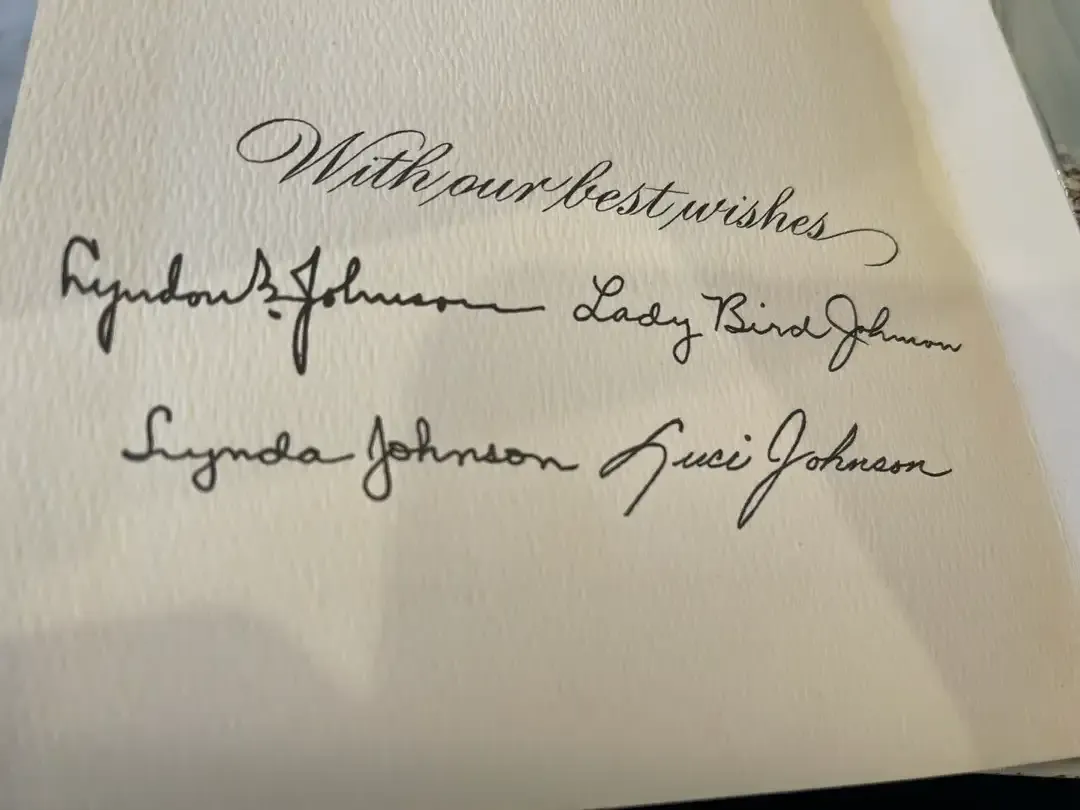 With our best wishes
Lyndon B. Johnson Lady Bird Johnson
Lynda Johnson Luci Johnson